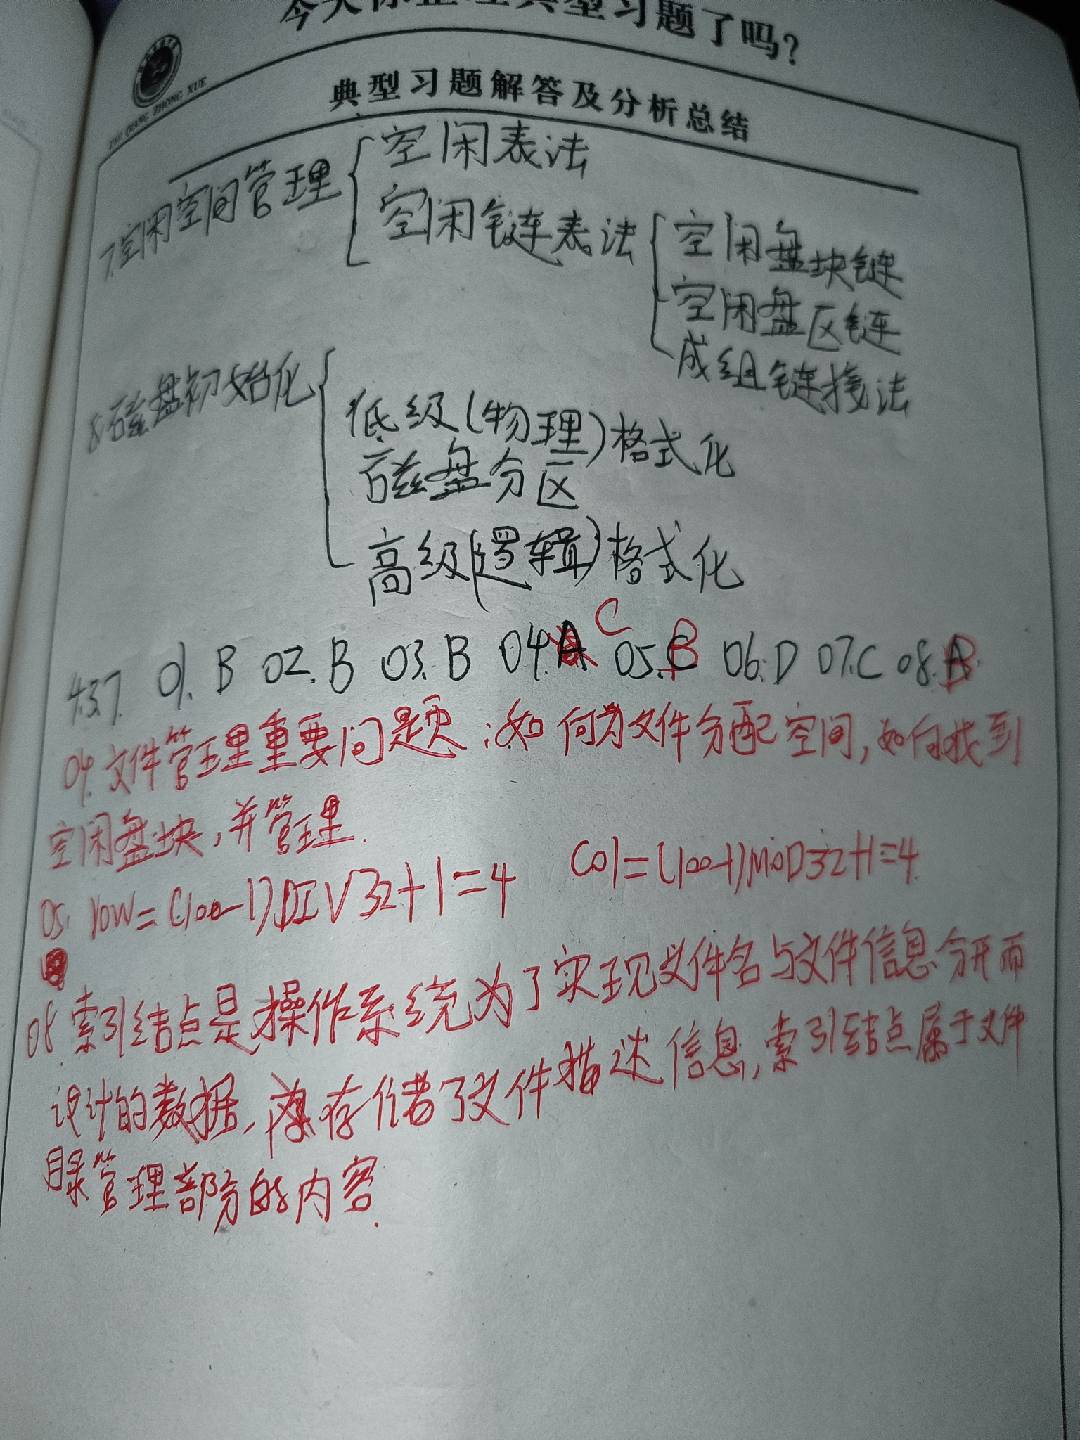 今天你整理典型习题了吗?
典型习题解答及分析总结
7.空闲空间管理 空闲表法
空闲链表法 空闲盘块链
空闲盘区链
成组链接法
8.磁盘初始化
低级(物理)格式化
磁盘分区
高级(逻辑)格式化
4.3.7. 01.B 02.B 03.B 04.A C 05.C B 06.D 07.C 08.A B
04.文件管理重要问题:如何为文件分配空间,如何找到
空闲盘块,并管理.
05. row=(100-1)DIV32+1=4 col=(100-1)MOD32+1=4.
08.索引结点是操作系统为了实现文件名与文件信息分开而
设计的数据,存储了文件描述信息,索引结点属于文件
目录管理部分的内容.